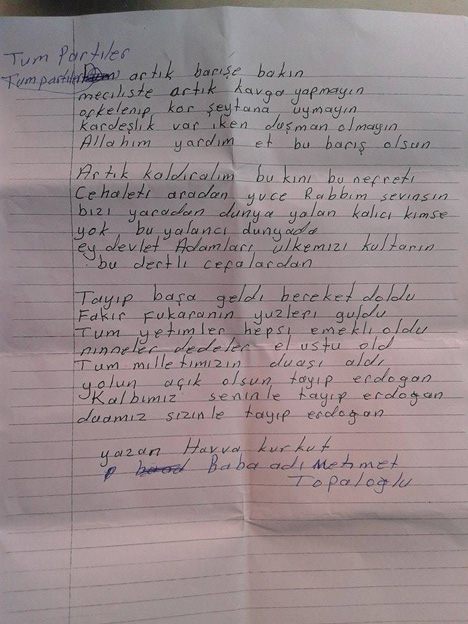 Tum Partiler
Tum partiler artık barışe bakın
mecliste artık kavga yapmayın
öfkelenip kor şeytana uymayın
kardeşlik var iken duşman olmayın
Allahım yardım et bu barış olsun
Artık kaldıralım bu kini bu nefreti
Cehaleti aradan yuce Rabbim sevinsin
bizi yaradan dunya yalan kalıcı kimse
yok bu yalancı dunyada
ey devlet Adamları ülkemizi kultarın
bu dertli cefalardan
Tayıp başa geldi bereket doldu
Fakir fukaranın yuzleri guldu
Tum yetimler hepsi emekli oldu
ninneler dedeler el ustu old
Tum milletimizin duası aldı
yolun açık olsun tayıp erdogan
Kalbimiz seninle tayıp erdogan
duamız sizinle tayıp erdogan
yazan Havva kurkut
Baba adı Mehmet
Topaloglu